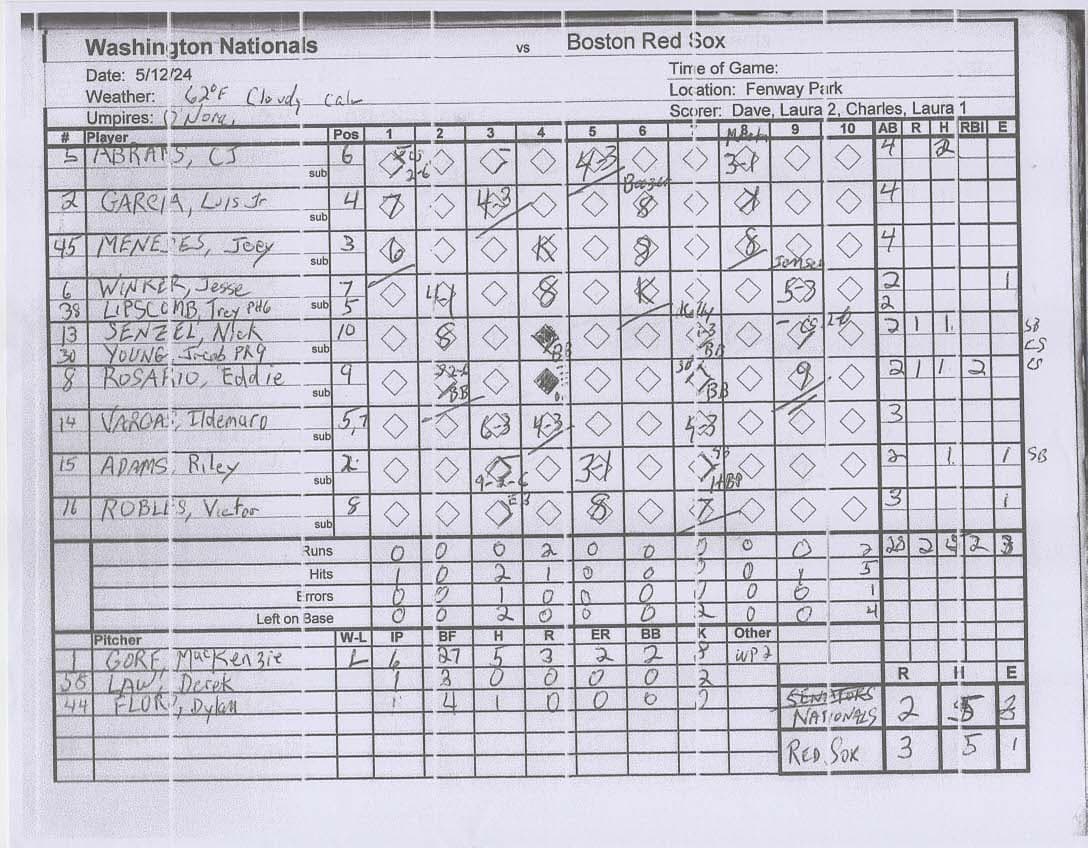 Washington Nationals vs Boston Red Sox
Date: 5/12/24 Time of Game:
Weather: 62°F Cloudy Calm Location: Fenway Park
Umpires: Nora, Scorer: Dave, Laura 2, Charles, Laura 1
# Player Pos 1 2 3 4 5 6 7 8 9 10 AB R H RBI E
5 ABRAMS, CJ 6 2-6 4-3 3-1 4 2
sub
2 GARCIA, Luis Jr 4 7 4-3 8 4
sub
45 MENESES, Joey 3 6 K 8 8 4
sub
6 WINKER, Jesse 7 4-1 8 K 5-3 2 1
38 LIPSCOMB, Trey PH6 sub 5 2
13 SENZEL, Nick 10 8 BB BB 2 1 1 SB
30 YOUNG, Jacob PR9 sub CS
8 ROSARIO, Eddie 9 BB BB 9 2 1 1 2 CS
sub
14 VARGAS, Ildemaro 5,7 6-3 4-3 5-3 3
sub
15 ADAMS, Riley 2 3-1 HBP 2 1 1 SB
sub
16 ROBLES, Victor 8 E3 8 7 3 1
sub
Runs 0 0 0 2 0 0 0 0 0 2 28 2 5 2 3
Hits 1 0 2 1 0 0 0 0 1 5
Errors 0 0 1 0 0 0 0 0 0 1
Left on Base 0 0 2 0 0 0 2 0 0 4
Pitcher W-L IP BF H R ER BB K Other
1 GORE, MacKenzie L 6 27 5 3 2 2 8 WP 2
58 LAW, Derek 1 3 0 0 0 0 2
44 FLORO, Dylan 1 4 1 0 0 0
R H E
SENATORS
NATIONALS 2 5 3
RED SOX 3 5 1